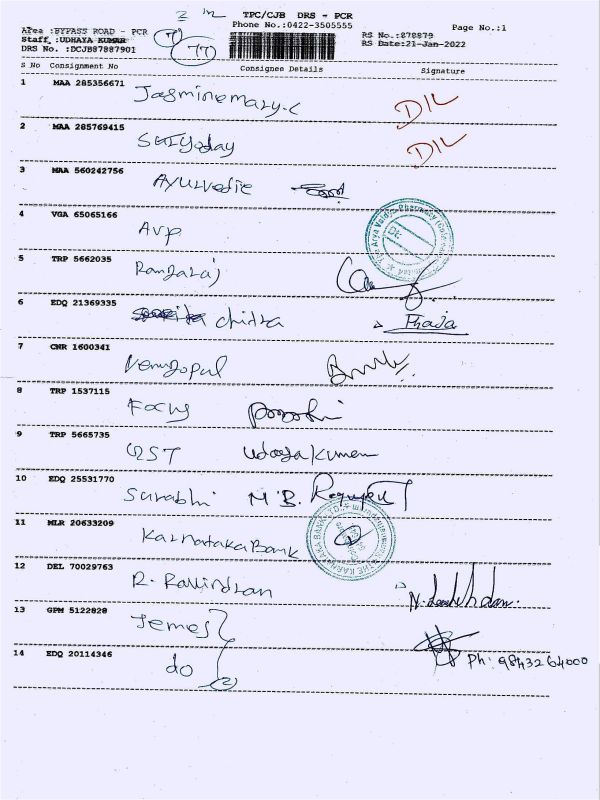 TPC/CJB DRS - PCR
Phone No.:0422-3505555
Page No.:1
Area :BYPASS ROAD - PCR
Staff :UDHAYA KUMAR
DRS No. :DCJB87887901
RS No.:878879
RS Date:21-Jan-2022
S No Consignment No Consignee Details Signature
1 MAA 285356671 Jasminemary.c DIL
2 MAA 285769415 Suryoday DIL
3 MAA 560242756 Ayurvedic
4 VGA 65065166 Avp
5 TRP 5662035 Rangaraj
6 EDQ 21369335 chitra
7 CNR 1600341 Venugopal
8 TRP 1537115 Focus
9 TRP 5665735 QST Udayakumar
10 EDQ 25531770 Surabhi M.B.
11 MLR 20633209 Karnataka Bank
12 DEL 70029763 R. Ravindran
13 GPM 5122828 Jemes
14 EDQ 20114346 do (2) Ph: 9843264000